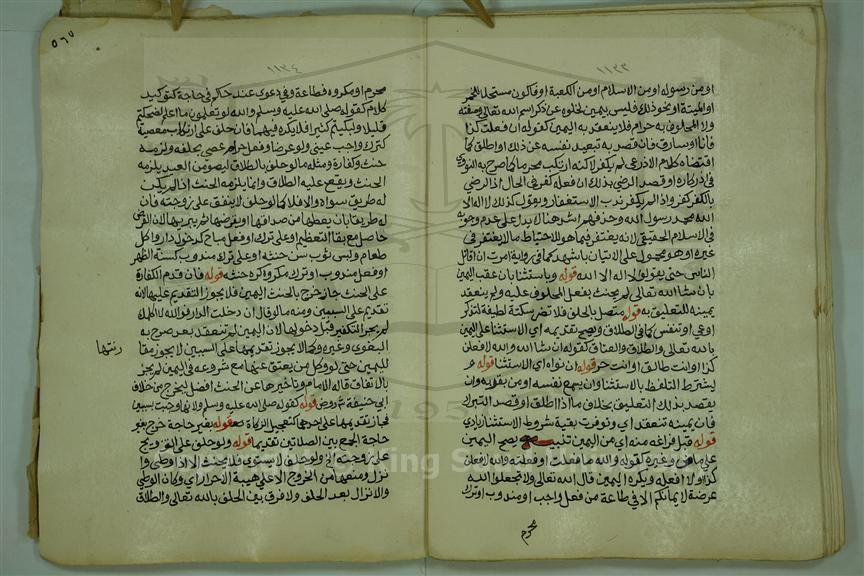 ١١٢٣
او من رسوله او من الاسلام او من الكعبة او فاكون مستحل للخمر
او الميتة او نحو ذلك فليس بيمين لخلوه عن ذكر اسم الله تعالى وصفته
ولا المحلوف به حرام فلا ينعقد به اليمين كقوله ان فعلت كذا
فانا او سارق فان قصد به تبعيد نفسه عن ذلك او اطلق كما
اقتضاه كلام الاذرعي لم يكفر لاكنه ارتكب محرما كما صرح به النووي
في اذكاره او قصد الرضى بذلك ان فعله كفر في الحال اذ الرضى
بالكفر كفر واذا لم يكفر ندب الاستغفار ويقول كذلك لا اله الا
الله محمد رسول الله وحذفهم اشهد هنا لا يدل على عدم وجوبه
في الاسلام الحقيقي لانه يغتفر فيما هو للاحتياط ما لا يغتفر في
غيره او هو محمول على الاتيان باشهد كما في رواية امرت ان اقاتل
الناس حتى يقولوا لا اله الا الله قوله وباستثنا بان عقب اليمين
بان شا الله تعالى لم يحنث بفعل المحلوف عليه ولم ينعقد
يمينه للتعليق به قوله متصل بالحلف فلا تضر سكتة لطيفة لتذكر
او عي او تنفس كما في الطلاق ويصح تقديمه اي الاستثنا على اليمين
بالله تعالى والطلاق والعتاق كقوله ان شا الله والله لا فعلن
كذا او انت طالق او انت حر قوله ان نواه اي الاستثنا قوله و
يشترط التلفظ بالاستثنا وان يسمع نفسه او من بقربه وان
يقصد بذلك التعليق بخلاف ما اذا اطلق او قصد التبرك
فان يمينه تنعقد اي وتوفرت بقية شروط الاستثنا بان
قوله قبل فراغه منه اي من اليمين تنبيه يصح اليمين
على ماض وغيره كقوله والله ما فعلت او فعلته والله لا فعلن
كذا او لا افعله ويكره اليمين قال الله تعالى ولا تجعلوا الله
عرضة لايمانكم الا في طاعة من فعل واجب او مندوب او ترك
محرم
٥٦٧
١١٢٤
محرم او مكروه فطاعة وفي دعوى عند حاكم في حاجة كتوكيد
كلام كقوله صلى الله عليه وسلم والله لو تعلمون ما اعلم لضحكتم
قليلا ولبكيتم كثيرا فلا يكره فيهما فان حلف على ارتكاب معصية
كترك واجب عيني ولو عرضا او فعل حرام عصى بحلفه ولزمه
حنث وكفارة ومثله ما لو حلف بالطلاق ليصومن العيد يلزمه
الحنث ويقع عليه الطلاق وانما يلزمه الحنث اذا لم يكن
له طريق سواه والا فلا كما لو حلف لا ينفق على زوجته فان
له طريقا بان يعطيها من صداقها او يقرضها ثم يبريها لان الغرض
حاصل مع بقا التعظيم او على ترك او فعل مباح كدخول دار واكل
طعام ولبس ثوب سن حنثه او على ترك مندوب كسنة الظهر
او فعل مندوب او ترك مكروه كره حنثه قوله فان قدم الكفارة
على الحنث جاز خرج بالحنث اليمين فلا يجوز التقديم عليها لانه
تقديم على السببين ومنه ما لو قال ان دخلت الدار فوالله لا اكلمك
لم يجز التكفير قبل دخولها لان اليمين لم تنعقد بعد صرح به
البغوي وغيره وكما لا يجوز تقديمها على السببين لا يجوز
لليمين حتى لو وكل من يعتق عنها مع شروعه في اليمين لم يجز
بالاتفاق قاله الامام وتاخيرها عن الحنث افضل ليخرج من خلاف
ابي حنيفة قوله كقوله صلى الله عليه وسلم ولانها وجبت بسببين
فجاز تقديمها على احدهما كتعجيل الزكاة قوله بغير حاجة خرج بغير
حاجة الجمع بين الصلاتين تقديما قوله ولو حلف على
على زوجته الخ ولو حلف لا يستوفي فلا يحنث الا ان وطى وا
نزل ومنعها من الخروج الا على هيبة الاحرار اي وكان الوطى
والانزال بعد الحلف ولا فرق بين الحلف بالله تعالى والطلاق